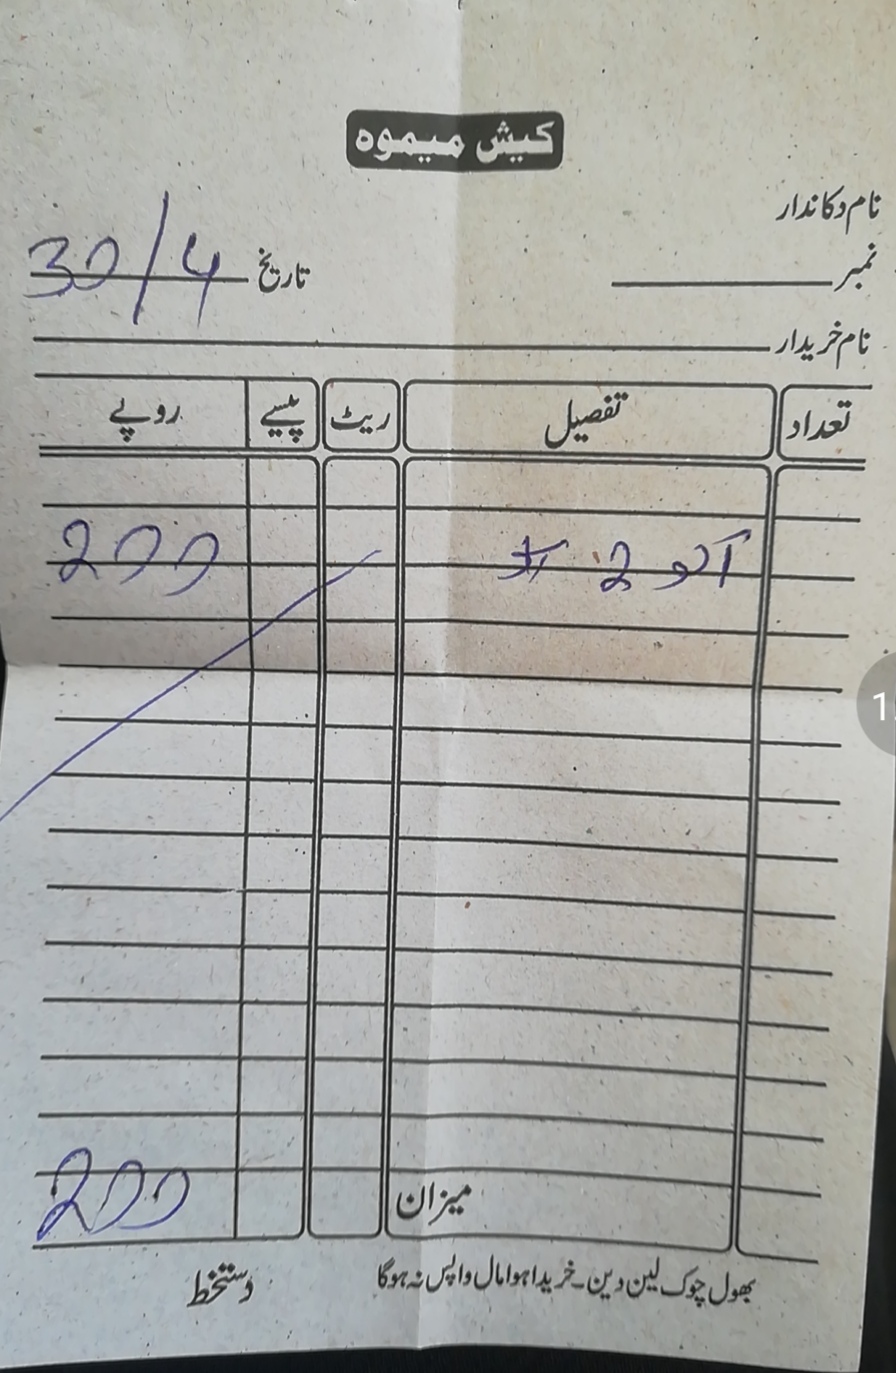 کیش میموہ
نام دکاندار
نمبر تاریخ 30/4
نام خریدار
تعداد تفصیل ریٹ پیسے روپے
آلو 2 200
میزان 200
بھول چوک لین دین ۔ خریدا ہوا مال واپس نہ ہوگا
دستخط
1